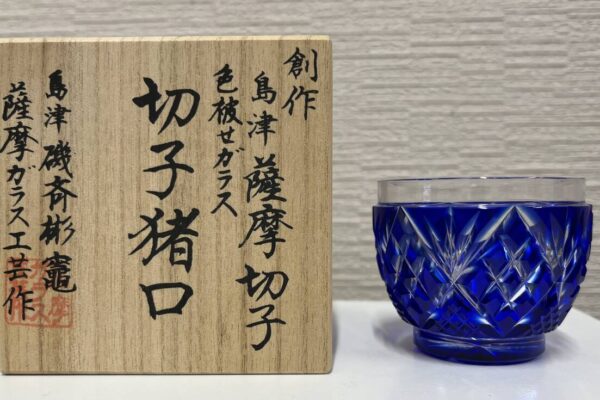 創作
島津薩摩切子
色被せガラス
切子猪口
島津磯斉彬竈
薩摩ガラス工芸作